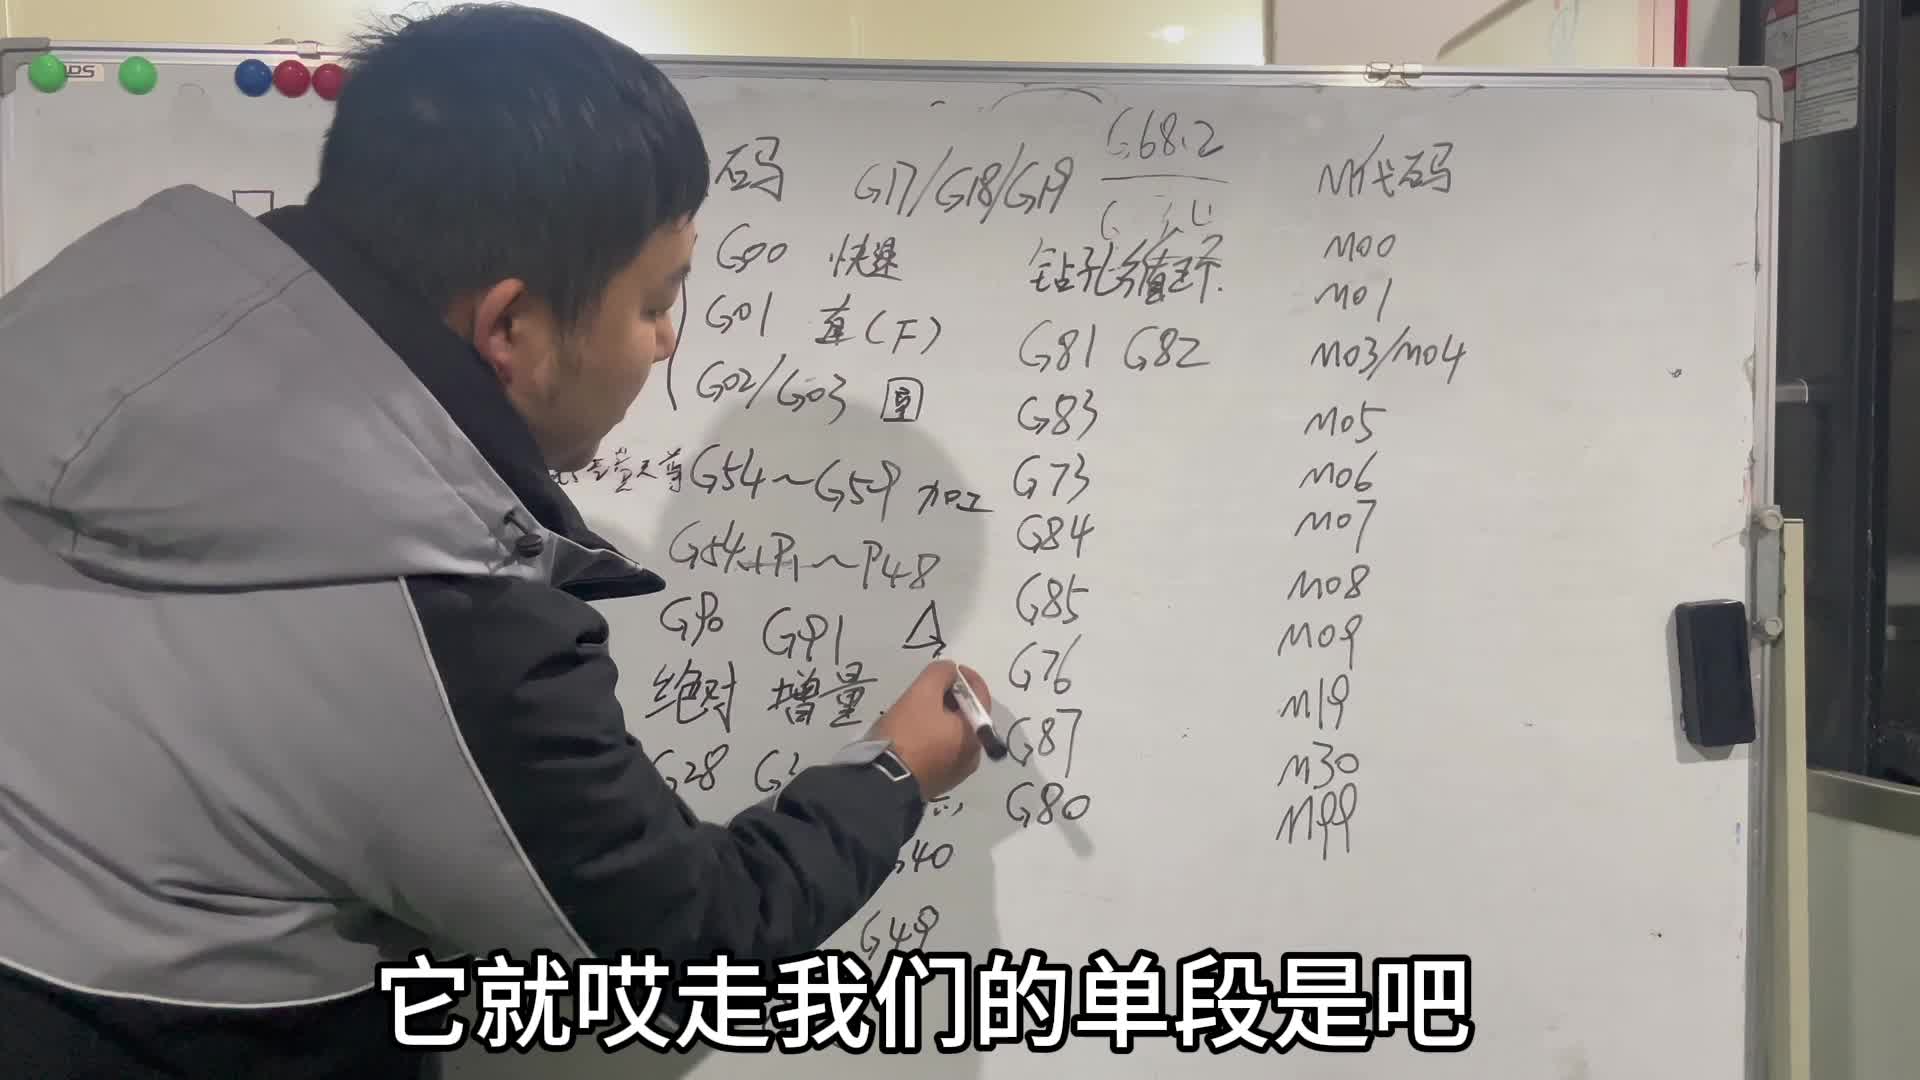 码 G17/G18/G19 G68.2
G00 快速
G01 直(F)
G02/G03 圆
G54~G59 加工
G54.1P1~P48
G90 G91
绝对 增量
G28
G40
G49
钻孔循环.
G81 G82
G83
G73
G84
G85
G76
G87
G80
M代码
M00
M01
M03/M04
M05
M06
M07
M08
M09
M19
M30
M99
它就哎走我们的单段是吧